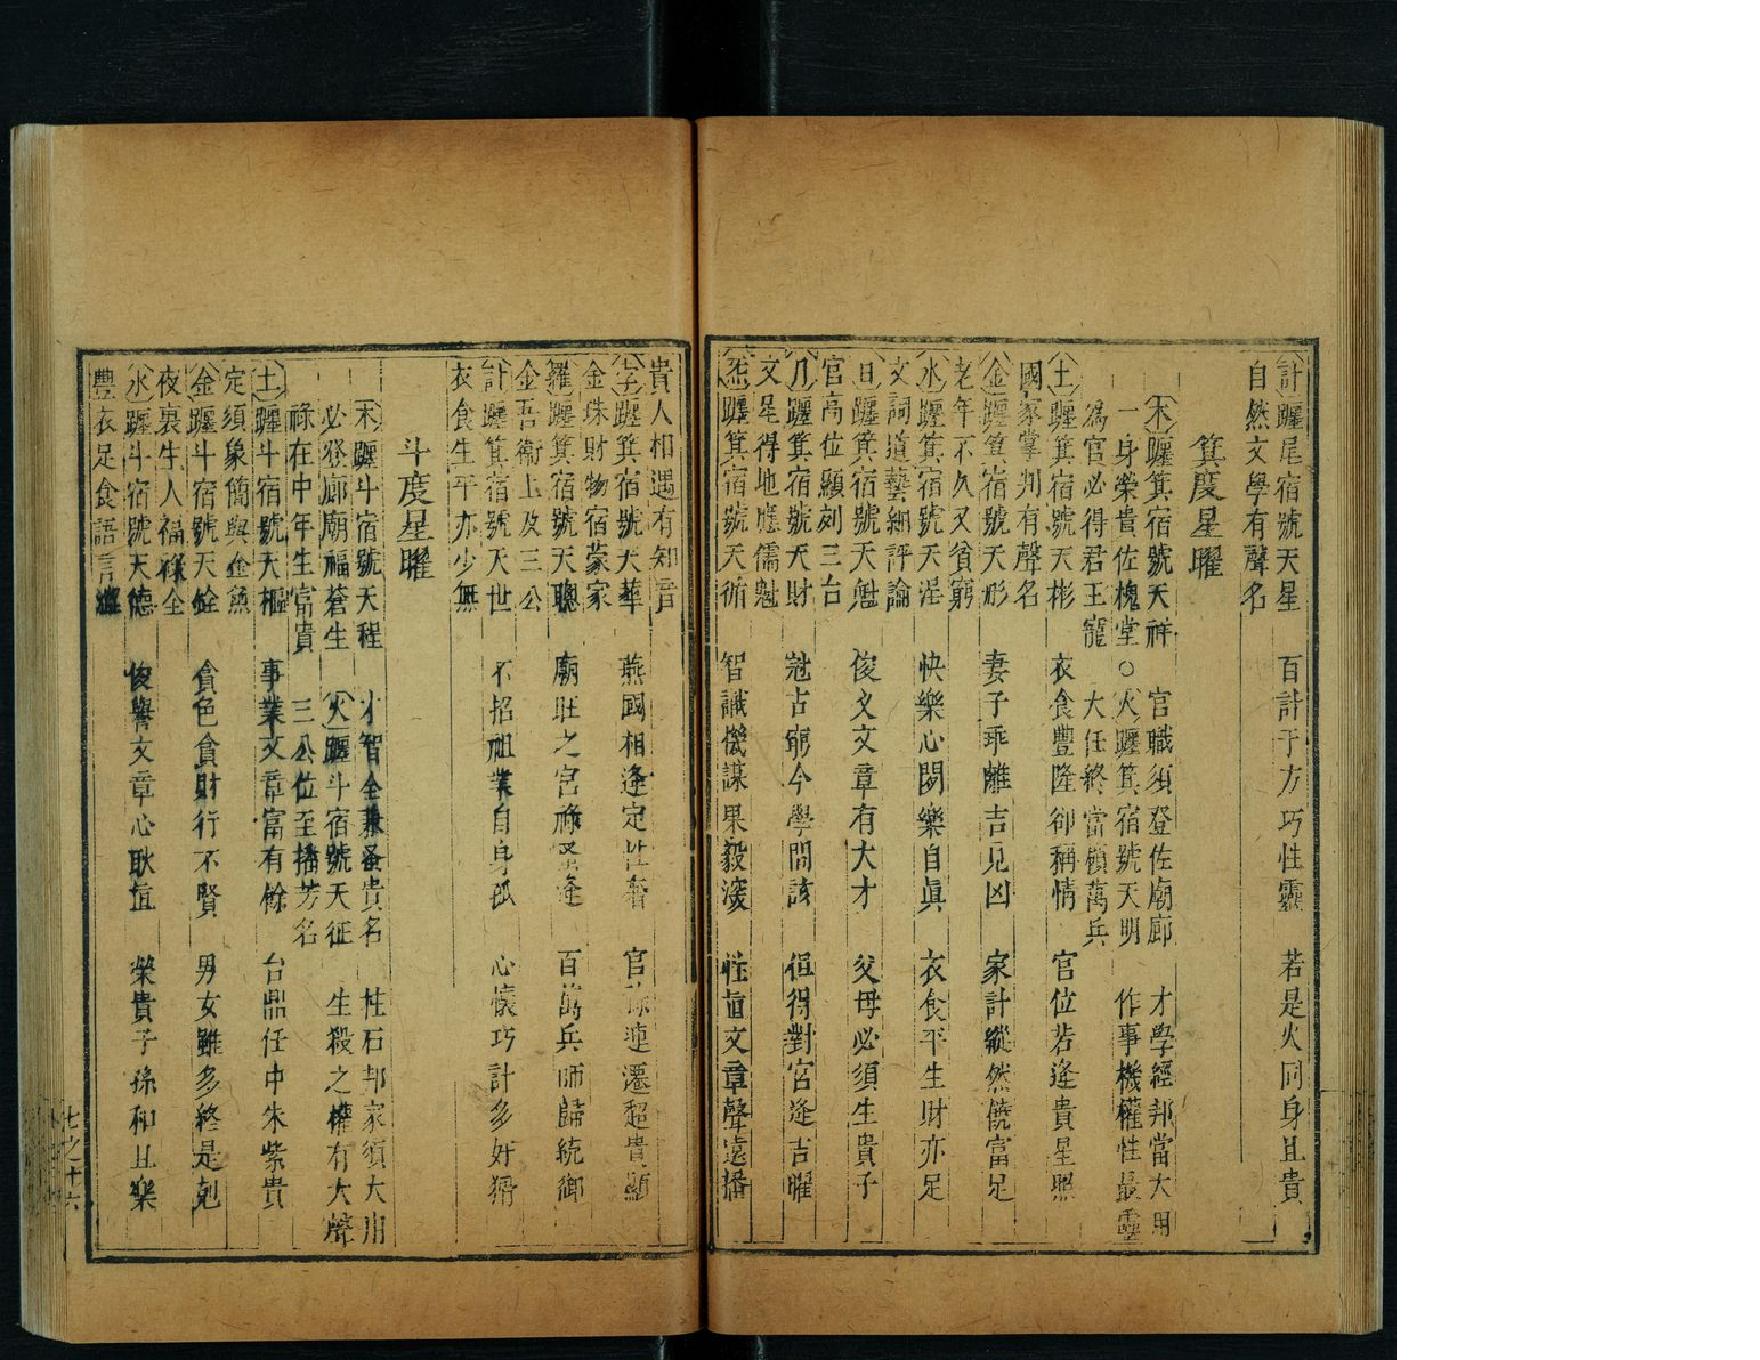 計躔尾宿號天星　百計千方巧性靈　若是火同身且貴
自然文學有聲名
箕度星曜
木躔箕宿號天祥　官職須登佐廟廊　才學經邦當大用
一身榮貴佐槐堂○火躔箕宿號天明　作事機權性最靈
為官必得君王寵　大任終當領萬兵
土躔箕宿號天彬　衣食豐隆卻稱情　官位若逢貴星照
國家掌判有聲名
金躔箕宿號天形　妻子乖離吉見凶　家計縱然饒富足
老年不久又貧窮
水躔箕宿號天淫　快樂心閑樂自眞　衣食平生財亦足
文詞道藝細評論
日躔箕宿號天魁　俊文文章有大才　父母必須生貴子
官高位顯刻三台
月躔箕宿號天財　冠古窮今學問該　但得對宮逢吉曜
文星得地應儒魁
炁躔箕宿號天循　智識機謀果毅深　性直文章聲遠播
貴人相遇有知音
孛躔箕宿號天華　燕國相逢定　奢　官　連遷超貴顯
金珠財物宿蒙家
羅躔箕宿號天聰　廟旺之宮祿　逢　百萬兵師歸統御
金吾衛上及三公
計躔箕宿號天世　不招祖業自身孤　心懷巧計多奸猾
衣食生平亦少無
斗度星曜
木躔斗宿號天程　才智全兼蚤貴名　柱石邦家須大用
必登廊廟福蒼生　火躔斗宿號天征　生殺之權有大聲
祿在中年生富貴　三公位至播芳名
土躔斗宿號天樞　事業文章富有餘　台鼎任中朱紫貴
定須象簡與金魚
金躔斗宿號天銓　貪色貪財行不賢　男女雖多終是剋
夜裏生人福祿全
水躔斗宿號天德　俊譽文章心耿直　榮貴子孫和且樂
豐衣足食語言
七之十六